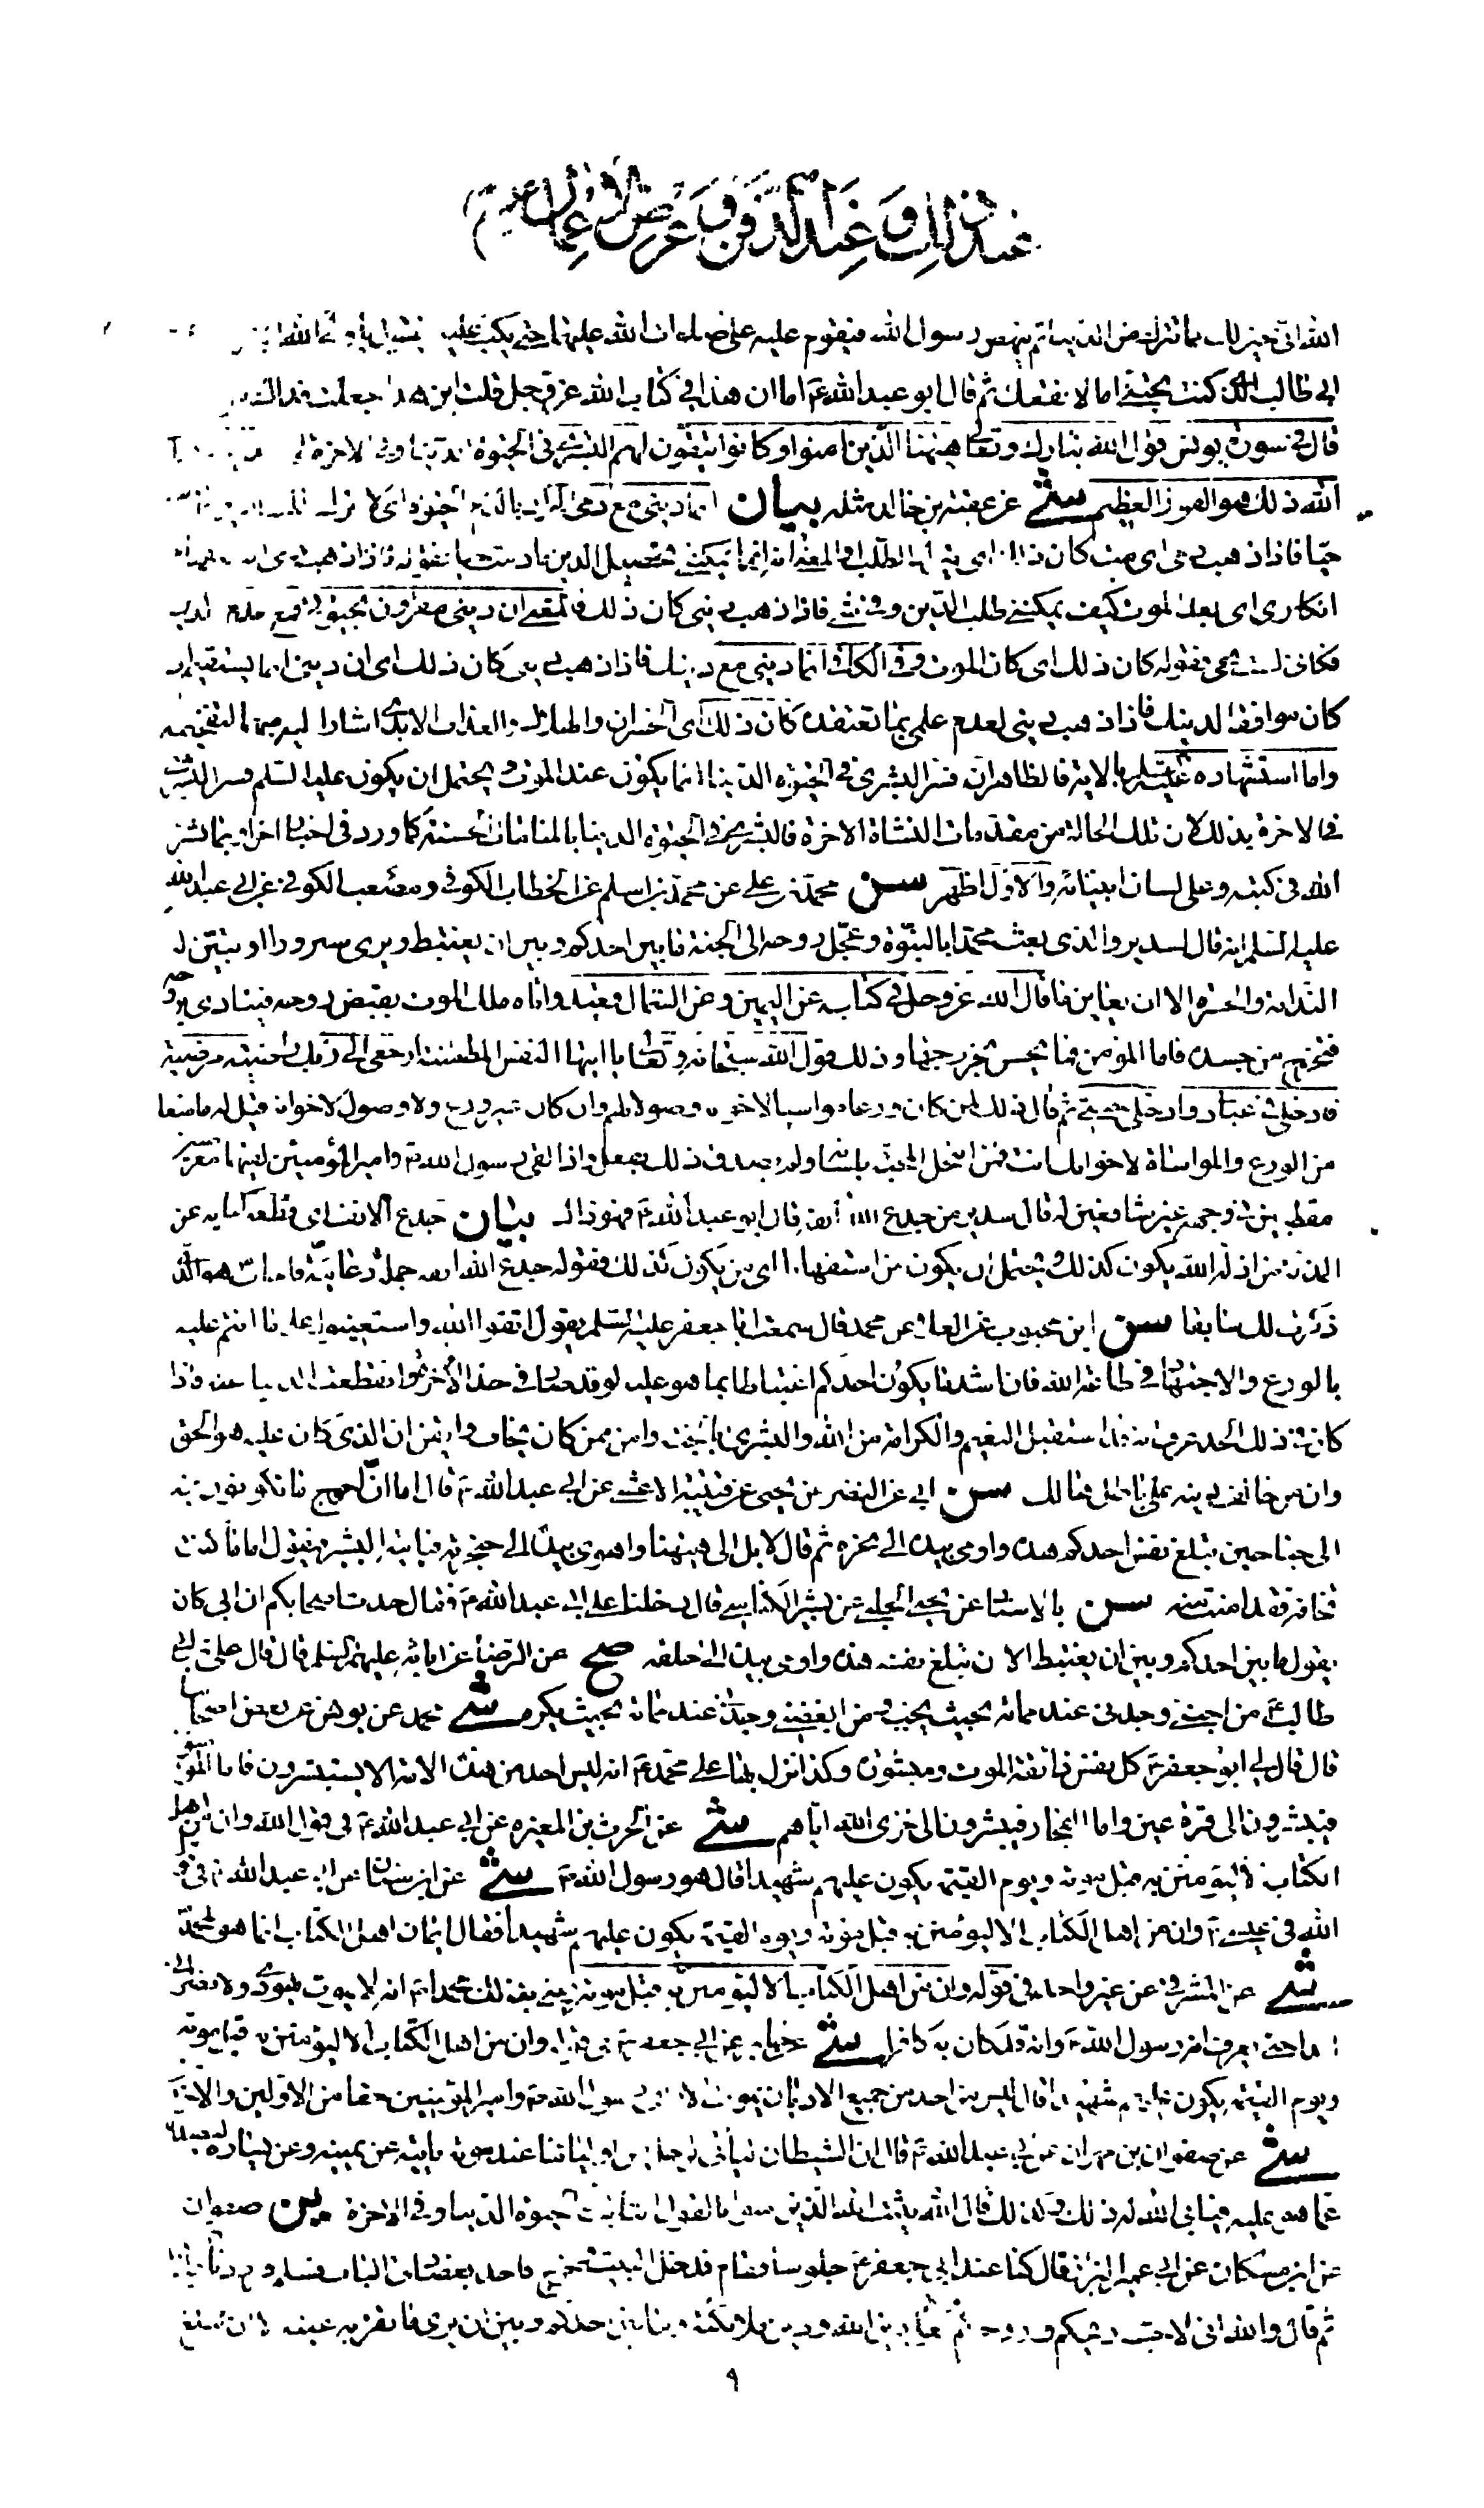 عند ذلك وعند الدفن وعرض الاعمال عليهم
الله اتى خير لك مما تترك من الدنيا ثم ينهض رسول الله فيقوم عليه علي صلوات الله عليهما حتى يكب عليه فيقول يا ولي الله انا
ابي طالب الذي كنت تحبني اما لانفعنك ثم قال ابو عبد الله ع اما ان هذا في كتاب الله عز وجل قلت اين هذا جعلت فداك
قال في سورة يونس قول الله تبارك وتعالى هيهنا الذين امنوا وكانوا يتقون لهم البشرى في الحيوة الدنيا وفي الاخرة لا
الله ذلك هو الفوز العظيم شي عن عقبة بن خالد مثله بيان انما ديني مع دمي
حيا فاذا ذهب دمي اي مت كان ذلك انما يمكنني تحصيل الدين ما دمت حيا بقوله فاذا ذهب دمي
انكاري اي بعد الموت كيف يمكنني طلب الدين وفي شي فاذا ذهب ديني كان ذلك فالمعنى ان ديني مقرون بحيوتي فمع عدم الدين
فكاني لست بحي فقوله كان ذلك اي كان الموت وفي الكافي انما ديني مع دينك فاذا ذهب ديني كان ذلك اي ان ديني انما يستقيم اذا
كان موافقا لدينك فاذا ذهب ديني لعدم علمي بما تعتقده كان ذلك اي الخسران والهلاك والعذاب الابدي اشار اليه مبهما لتفخيمه
واما استشهاده عليه السلم بالاية فالظاهر انه فسر البشرى في الحيوة الدنيا بما يكون عند الموت ويحتمل ان يكون عليه السلم فسر البشرى
في الاخرة بذلك لان تلك الحالة من مقدمات النشاة الاخرة فالبشرى في الحيوة الدنيا بالمنامات الحسنة كما ورد في اخبار اخر او بما بشر
الله في كتبه وعلى لسان انبيائه والاول اظهر سن محمد بن علي عن محمد بن اسلم عن الخطاب الكوفي ومصعب الكوفي عن ابي عبد الله
عليه السلم انه قال لسدير والذي بعث محمدا بالنبوة وعجل روحه الى الجنة ما بين احدكم وبين ان يغتبط ويرى سرورا او تبين له
الندامة والحسرة الا ان يعاين ما قال الله عز وجل في كتابه عن اليمين وعن الشمال قعيد واتاه ملك الموت بقبض روحه فينادي روحه
فتخرج من جسده فاما المؤمن فما يحس بخروجها وذلك قول الله سبحانه وتعالى يا ايتها النفس المطمئنة ارجعي الى ربك راضية مرضية
فادخلي في عبادي وادخلي جنتي ثم قال ذلك لمن كان ورعا مواسيا لاخوانه وصولا لهم وان كان غير ورع ولا وصول لاخوانه قيل له ما منعك
من الورع والمواساة لاخوانك انت ممن انتحل المحبة بلسانه ولم يصدق ذلك بفعل واذا لقي رسول الله ص وامير المؤمنين لقيهما معرضين
مقطبين في وجهه غير شافعين له قال سدير من جدع الله انفه قال ابو عبد الله ع فهو ذاك بيان جدع الانف اي قطعه كناية عن
المذلة من اذله الله يكون كذلك ويحتمل ان يكون من استفهاما اي من يكون كذلك فقوله جدع الله انفه جملة دعائية فاجاب ع هو الذي
ذكرت لك سابقا سن ابن محبوب عن العلا عن محمد قال سمعت ابا جعفر عليه السلم يقول اتقوا الله واستعينوا على ما انتم عليه
بالورع والاجتهاد في طاعة الله فان اشد ما يكون احدكم اغتباطا بما هو عليه لو قد صار في حد الاخرة وانقطعت الدنيا عنه فاذا
كان في ذلك الحد عرف انه قد استقبل النعيم والكرامة من الله والبشرى بالجنة وامن ممن كان يخاف وايقن ان الذي كان عليه هو الحق
وان من خالف دينه على باطل هالك سن ابي عن النضر عن يحيى عن قتيبة الاعشى عن ابي عبد الله ع قال اما ان احوج ما تكونون فيه
الى حبنا حين تبلغ نفس احدكم هذه واومى بيده الى نحره ثم قال لا بل الى هيهنا واهوى بيده الى حنجرته فياتيه البشير فيقول اما ما كنت
تخافه فقد امنت منه سن بالاسناد عن يحيى الحلبي عن بشير الكناسي قال دخلنا على ابي عبد الله ع فقال حدث اصحابكم ان ابي كان
يقول ما بين احدكم وبين ان يغتبط الا ان تبلغ نفسه هذه واومى بيده الى حلقه صح عن الرضا عن ابائه عليهم السلم قال قال علي بن ابي
طالب ع من احبني وجدني عند مماته بحيث يحب ومن ابغضني وجدني عند مماته بحيث يكره شي محمد عن يونس عن بعض اصحابنا
قال قال لي ابو جعفر ع كل نفس ذائقة الموت ومبشورة وكذا نزل بها على محمد ص انه ليس احد من هذه الامة الا يستبشرون فاما المؤمنون
فيبشرون الى قرة عين واما الفجار فيبشرون الى خزي الله اياهم شي عن الحرث بن المغيرة عن ابي عبد الله ع في قول الله وان من اهل
الكتاب الا ليؤمنن به قبل موته ويوم القيمة يكون عليهم شهيدا قال هو رسول الله ص شي عن ابن سنان عن ابي عبد الله ع في قول
الله في عيسى ع وان من اهل الكتاب الا ليؤمنن به قبل موته ويوم القيمة يكون عليهم شهيدا فقال ايمان اهل الكتاب انما هو لمحمد
شي عن المشرقي عن غير واحد في قوله وان من اهل الكتاب الا ليؤمنن به قبل موته يعني بذلك محمدا ص انه لا يموت يهودي ولا نصراني
حتى يعرف انه رسول الله ص وانه قد كان به كافرا شي عن جابر عن ابي جعفر ع في قوله وان من اهل الكتاب الا ليؤمنن به قبل موته
ويوم القيمة يكون عليهم شهيدا قال ليس من احد من جميع الاديان يموت الا راى رسول الله ص وامير المؤمنين حقا من الاولين والاخرين
شي عن صفوان بن مهران عن ابي عبد الله ع قال ان الشيطان لياتي الرجل من اوليائنا عند موته ياتيه عن يمينه وعن يساره ليصده
عما هو عليه فيابى الله له ذلك وكذلك قال الله يثبت الله الذين امنوا بالقول الثابت في الحيوة الدنيا وفي الاخرة سن صفوان
عن ابن مسكان عن ابي عمرو البزاز قال كنا عند ابي جعفر ع جلوسا فقام فدخل البيت وخرج فاخذ بعضادتي الباب فسلم فرددنا عليه السلام
ثم قال والله اني لاحب ريحكم و